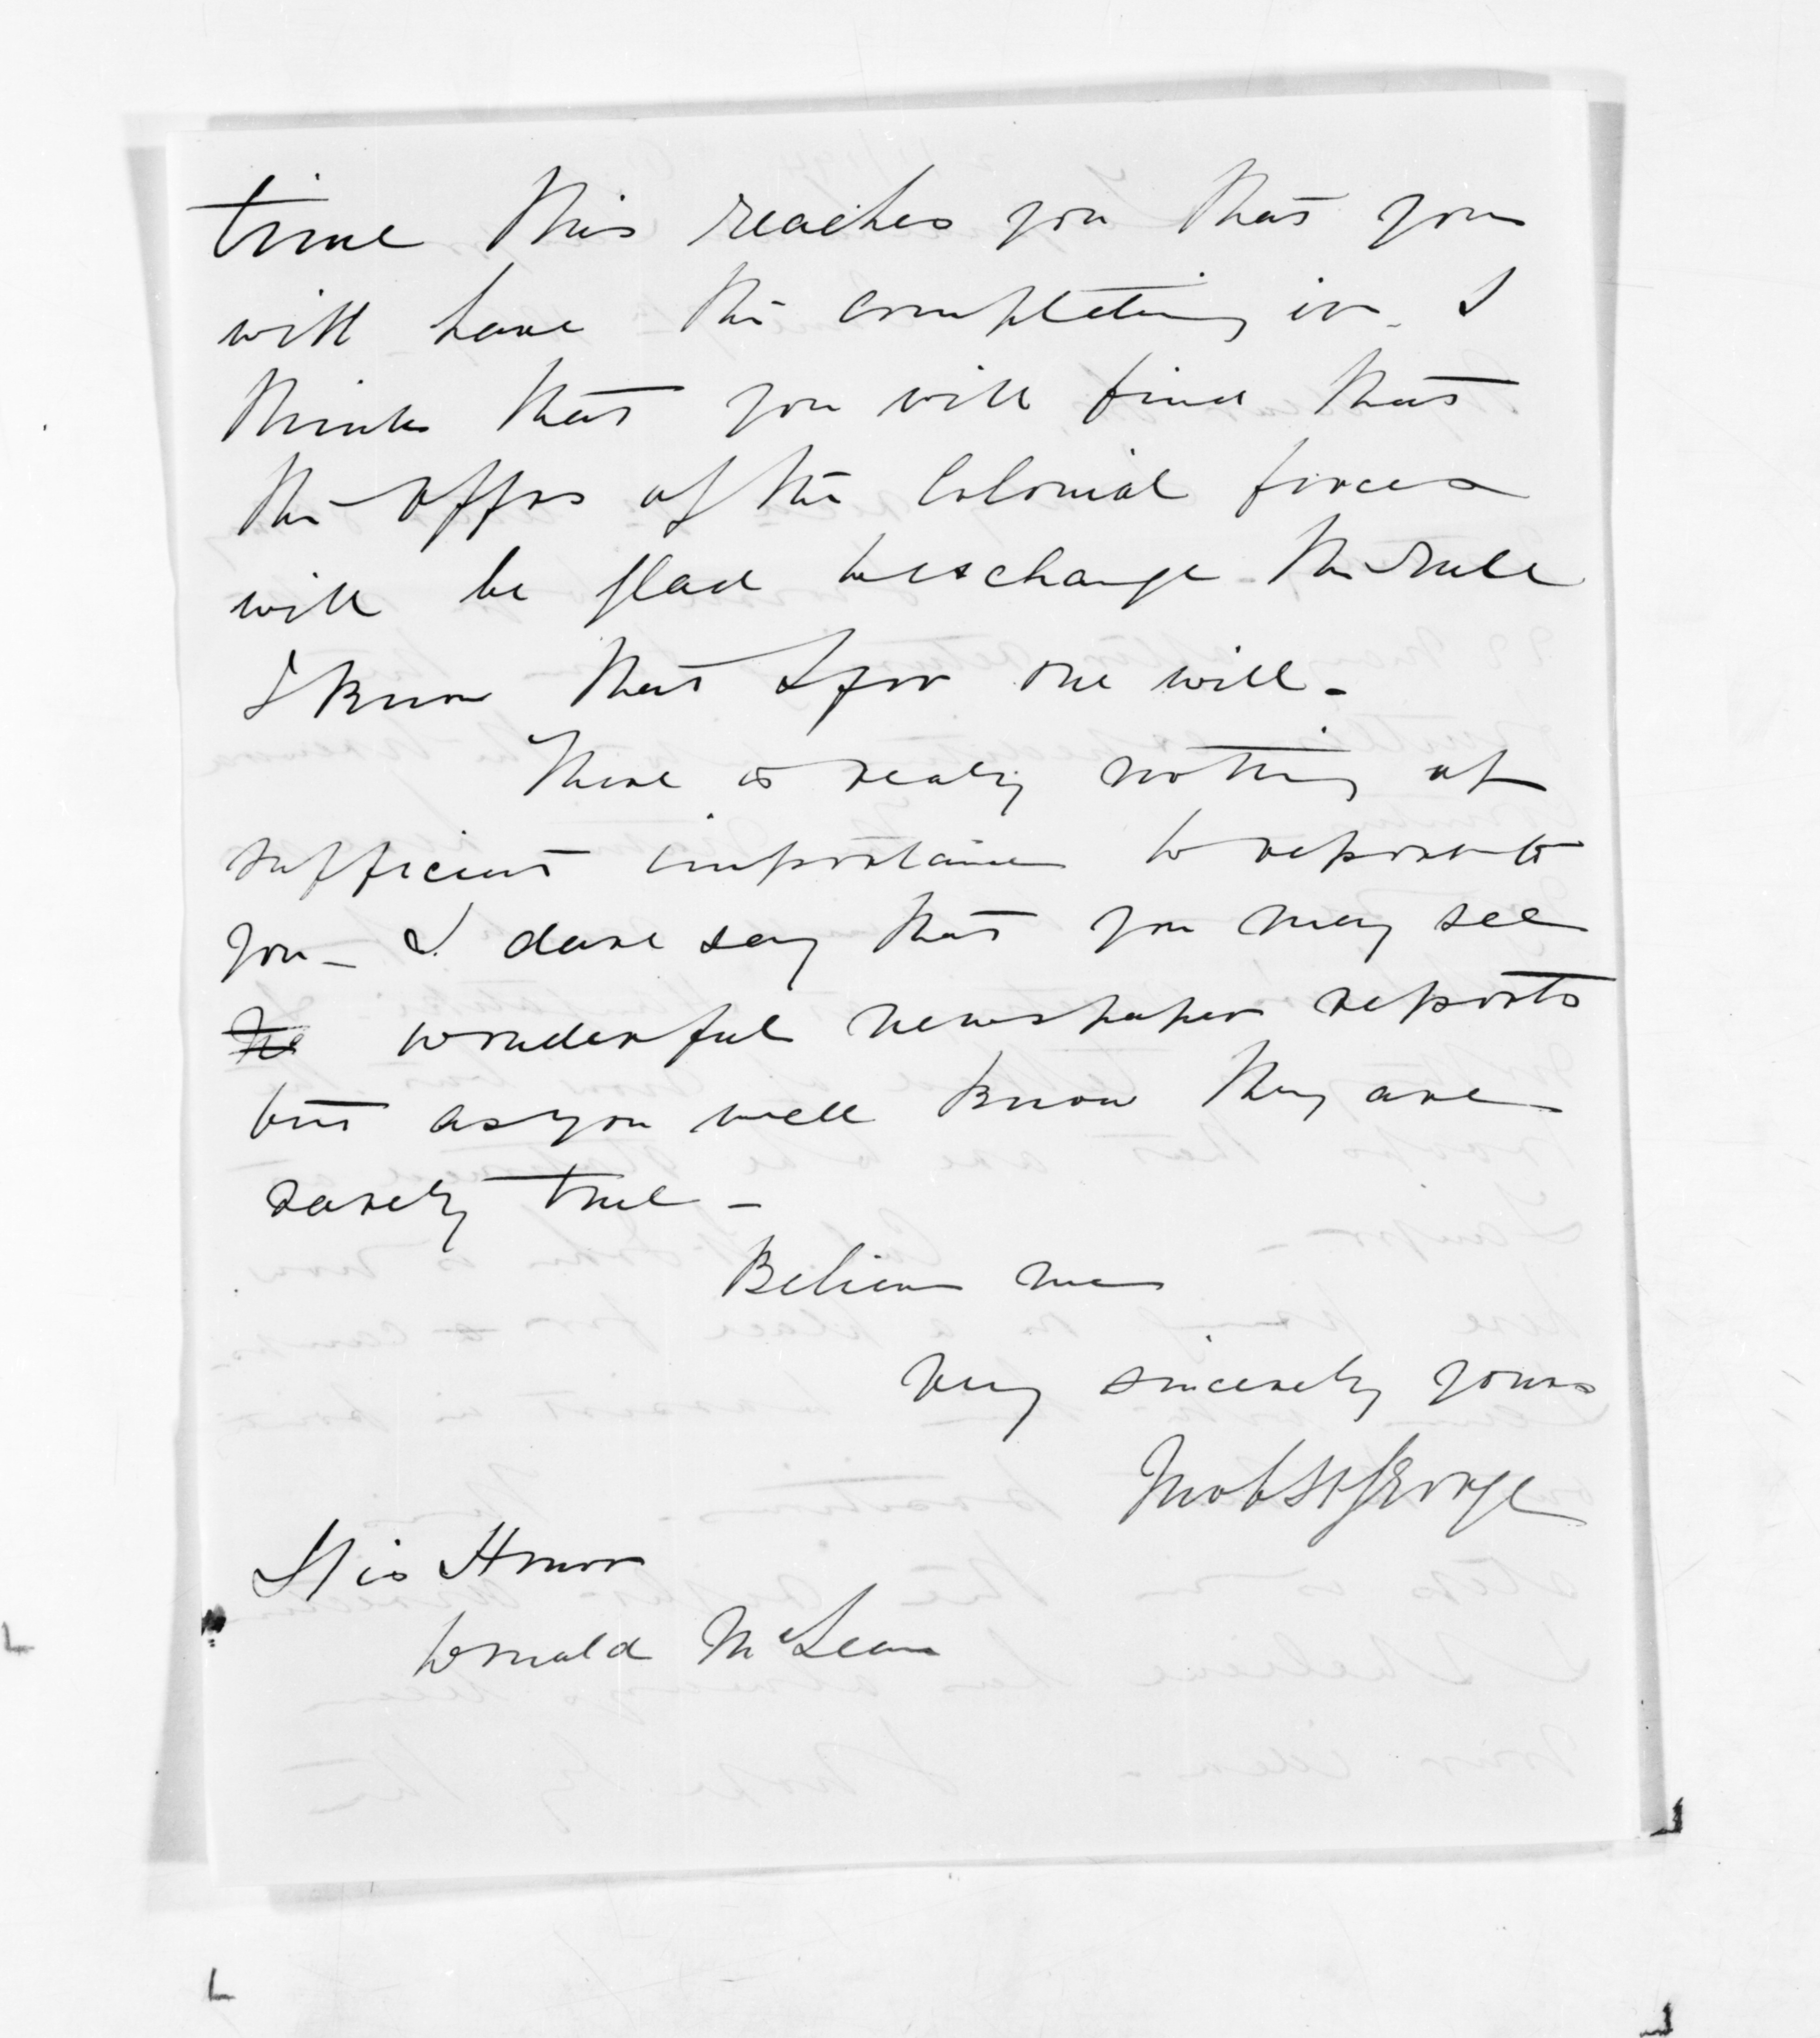 time this reaches you that you
will have the completing in. I
think that you will find that
the Offrs of the Colonial forces
will be glad to exchange the rule
I know that I for one will.
There is really nothing of
sufficient importance to report to
you - I dare say that you may see
wonderful newspaper reports
but as you well know they are
rarely true -
Believe me
very sincerely yours
Jno C St George
His Honor
Donald McLean